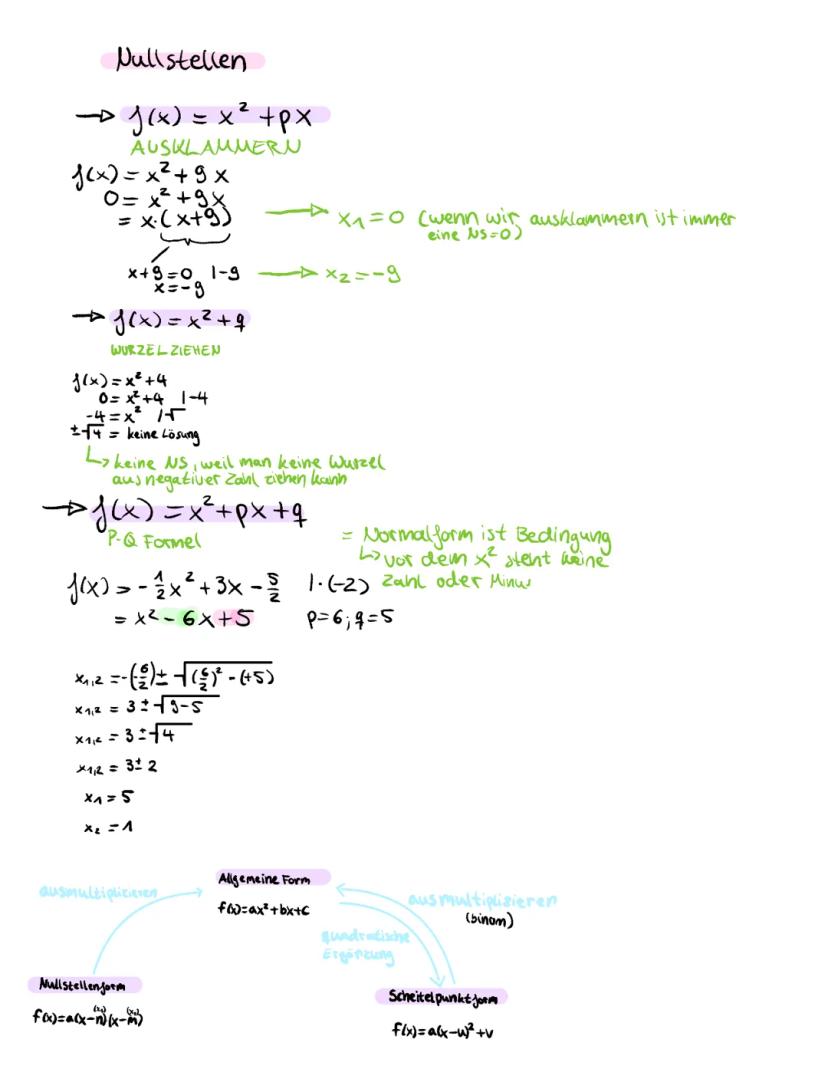 Nullstellen
→ f(x) = x² + px
AUSKLAMMERN
f(x) = x² + 9x
0 = x² + 9x
= x·(x+9) → x₁ = 0 (wenn wir ausklammern ist immer
eine NS=0)
x+9=0 |-9 → x₂ = -9
x=-9
→ f(x) = x² + q
WURZEL ZIEHEN
f(x) = x² + 4
0 = x² + 4 |-4
-4 = x² |√
±√4 = keine Lösung
↳ keine NS, weil man keine Wurzel
aus negativer Zahl ziehen kann
→ f(x) = x² + px + q
P-Q Formel
= Normalform ist Bedingung
↳ vor dem x² steht keine
Zahl oder Minus
f(x) = -1/2x² + 3x - 5/2 |·(-2)
= x² - 6x + 5 p=6; q=5
x₁,₂ = -(6/2) ± √((6/2)² - (+5))
x₁,₂ = 3 ± √9-5
x₁,₂ = 3 ± √4
x₁,₂ = 3 ± 2
x₁ = 5
x₂ = 1
Allgemeine Form
ausmultiplizieren
f(x)=ax²+bx+c
ausmultiplizieren
(binom)
quadratische
Ergänzung
Nullstellenform
f(x)=a(x-n)(x-m)
(x₁) (x₂)
Scheitelpunktform
f(x)=a(x-u)²+v